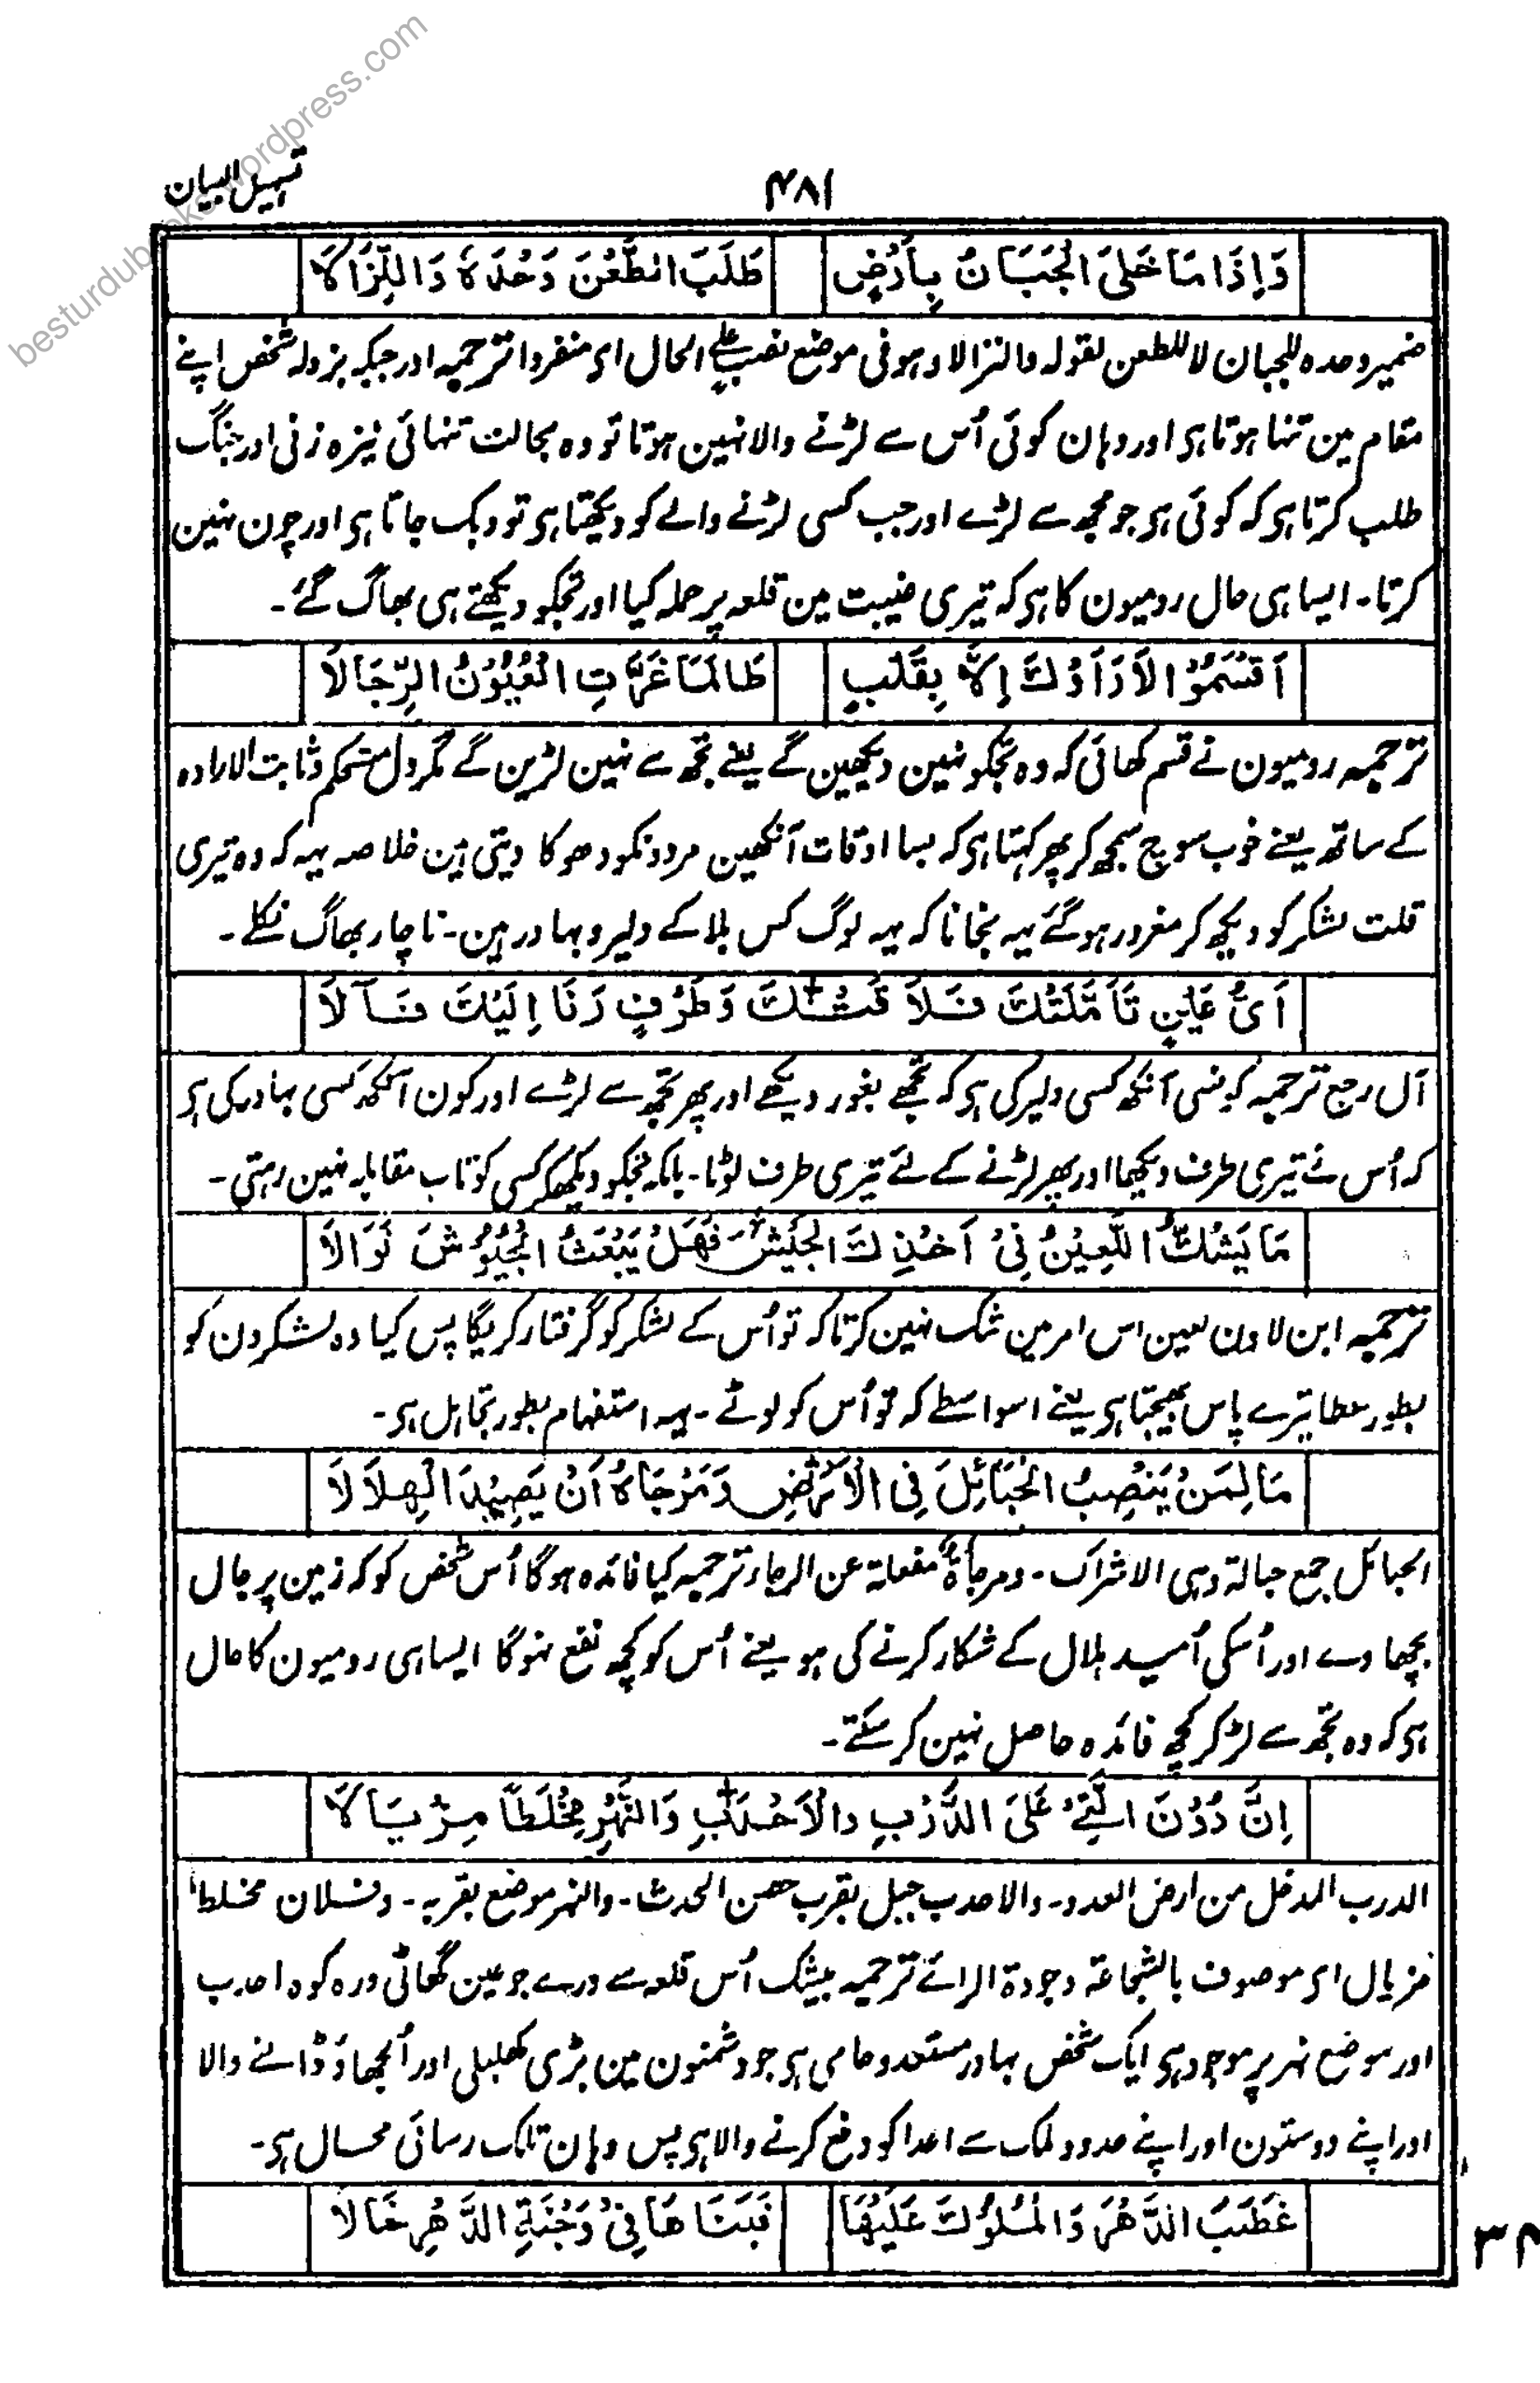 besturdubooks.wordpress.com
تسہیل البیان
۴۸۱
وَاِذَا مَا خَلَی الْجَبَانُ بِاَرْضٍ طَلَبَ الطَّعْنَ وَحْدَہٗ وَالنِّزَالَا
ضمیر وحدہ للجبان لا للطعن لقولہ والنزالا وہو فی موضع نصب علی الحال ای منفردا ترجمہ اور جبکہ بزدلہ شخص اپنے
مقام مین تنہا ہوتا ہی اور وہان کوئی اُس سے لڑنے والا نہین ہوتا تو وہ بحالت تنہائی نیزہ زنی اور جنگ
طلب کرتا ہی کہ کوئی ہی جو مجھ سے لڑے اور جب کسی لڑنے والے کو دیکھتا ہی تو دبک جاتا ہی اور چون نہین
کرتا۔ ایسا ہی حال رومیون کا ہی کہ تیری غیبت مین قلعہ پر حملہ کیا اور تجکو دیکھتے ہی بھاگ گئے۔
اَقْسَمُوْا لَا رَاَوْكَ اِلَّا بِقَلْبٍ طَالَمَا غَرَّتِ الْعُیُوْنُ الرِّجَالَا
ترجمہ رومیون نے قسم کھائی کہ وہ تجکو نہین دیکھین گے یعنے تجھ سے نہین لڑین گے مگر دل مستحکم و ثابت الارادہ
کے ساتھ یعنے خوب سوچ سمجھ کر پھر کہتا ہی کہ بسا اوقات آنکھین مردونکو دھوکا دیتی ہین خلاصہ یہہ کہ وہ تیری
قلت لشکر کو دیکھ کر مغرور ہو گئے یہہ نجانا کہ یہہ لوگ کس بلا کے دلیر و بہادر ہین۔ ناچار بھاگ نکلے۔
اَیُّ عَیْنٍ تَاَمَّلَتْكَ فَلَا قَتْكَ وَطَرْفٍ رَنَا اِلَیْكَ فَآلَا
آل رجع ترجمہ کونسی آنکھ کسی دلیر کی ہی کہ تجھے بغور دیکھے اور پھر تجھ سے لڑے اور کون آنکھ کسی بہادر کی ہی
کہ اُس نے تیری طرف دیکھا اور پھر لڑنے کے لئے تیری طرف لوٹا۔ بلکہ تجکو دیکھکر کسی کو تاب مقابلہ نہین رہتی۔
مَا یَشُكُّ اللَّعِیْنُ فِیْ اَخْذِكَ الْجَیْشَ فَهَلْ یَبْعَثُ الْجُیُوْشَ نَوَالَا
ترجمہ ابن لاون لعین اس امر مین شک نہین کرتا کہ تو اُس کے لشکر کو گرفتار کریگا پس کیا وہ لشکرون کو
بطور عطا تیرے پاس بھیجتا ہی یعنے اسواسطے کہ تو اُس کو لوٹے۔ یہہ استفہام بطور تجاہل ہی۔
مَا لِمَنْ یَنْصِبُ الْحَبَائِلَ فِی الْاَرْضِ وَمَرْجَاهُ اَنْ یَصِیْدَ الْهِلَالَا
الحبائل جمع حبالة وہی الاشراک۔ ومرجاة مفعلة عن الرجاء ترجمہ کیا فائدہ ہوگا اُس شخص کو کہ زمین پر جال
بچھا وے اور اُسکی اُمید ہلال کے شکار کرنے کی ہو یعنے اُس کو کچھ نفع نہوگا ایسا ہی رومیون کا حال
ہی کہ وہ تجھ سے لڑ کر کچھ فائدہ حاصل نہین کر سکتے۔
اِنَّ دُوْنَ الَّتِیْ عَلَی الدَّرْبِ وَالْاَحْدَبِ وَالنَّهْرِ مِخْلَطًا مِزْیَالَا
الدرب المدخل من ارض العدو۔ والاحدب جبل بقرب حصن الحدث۔ والنہر موضع بقربہ۔ وفلان مخلطا
مزیال ای موصوف بالشجاعة وجودة الرائے ترجمہ بیشک اُس قلعہ سے ورے جو عین گھاٹی درہ کوہ احدب
اور موضع نہر پر موجود ہی ایک شخص بہادر مستعد و حامی ہی جو دشمنون مین بڑی کھلبلی اور اُلجھاؤ ڈالنے والا
اور اپنے دوستون اور اپنے حدود ملک سے اعدا کو دفع کرنے والا ہی پس وہان تلک رسائی محال ہی۔
غَصَبَ الدَّهْرَ وَالْمُلُوْكَ عَلَیْهَا فَبَنَاهَا فِیْ وَجْنَةِ الدَّهْرِ خَالَا